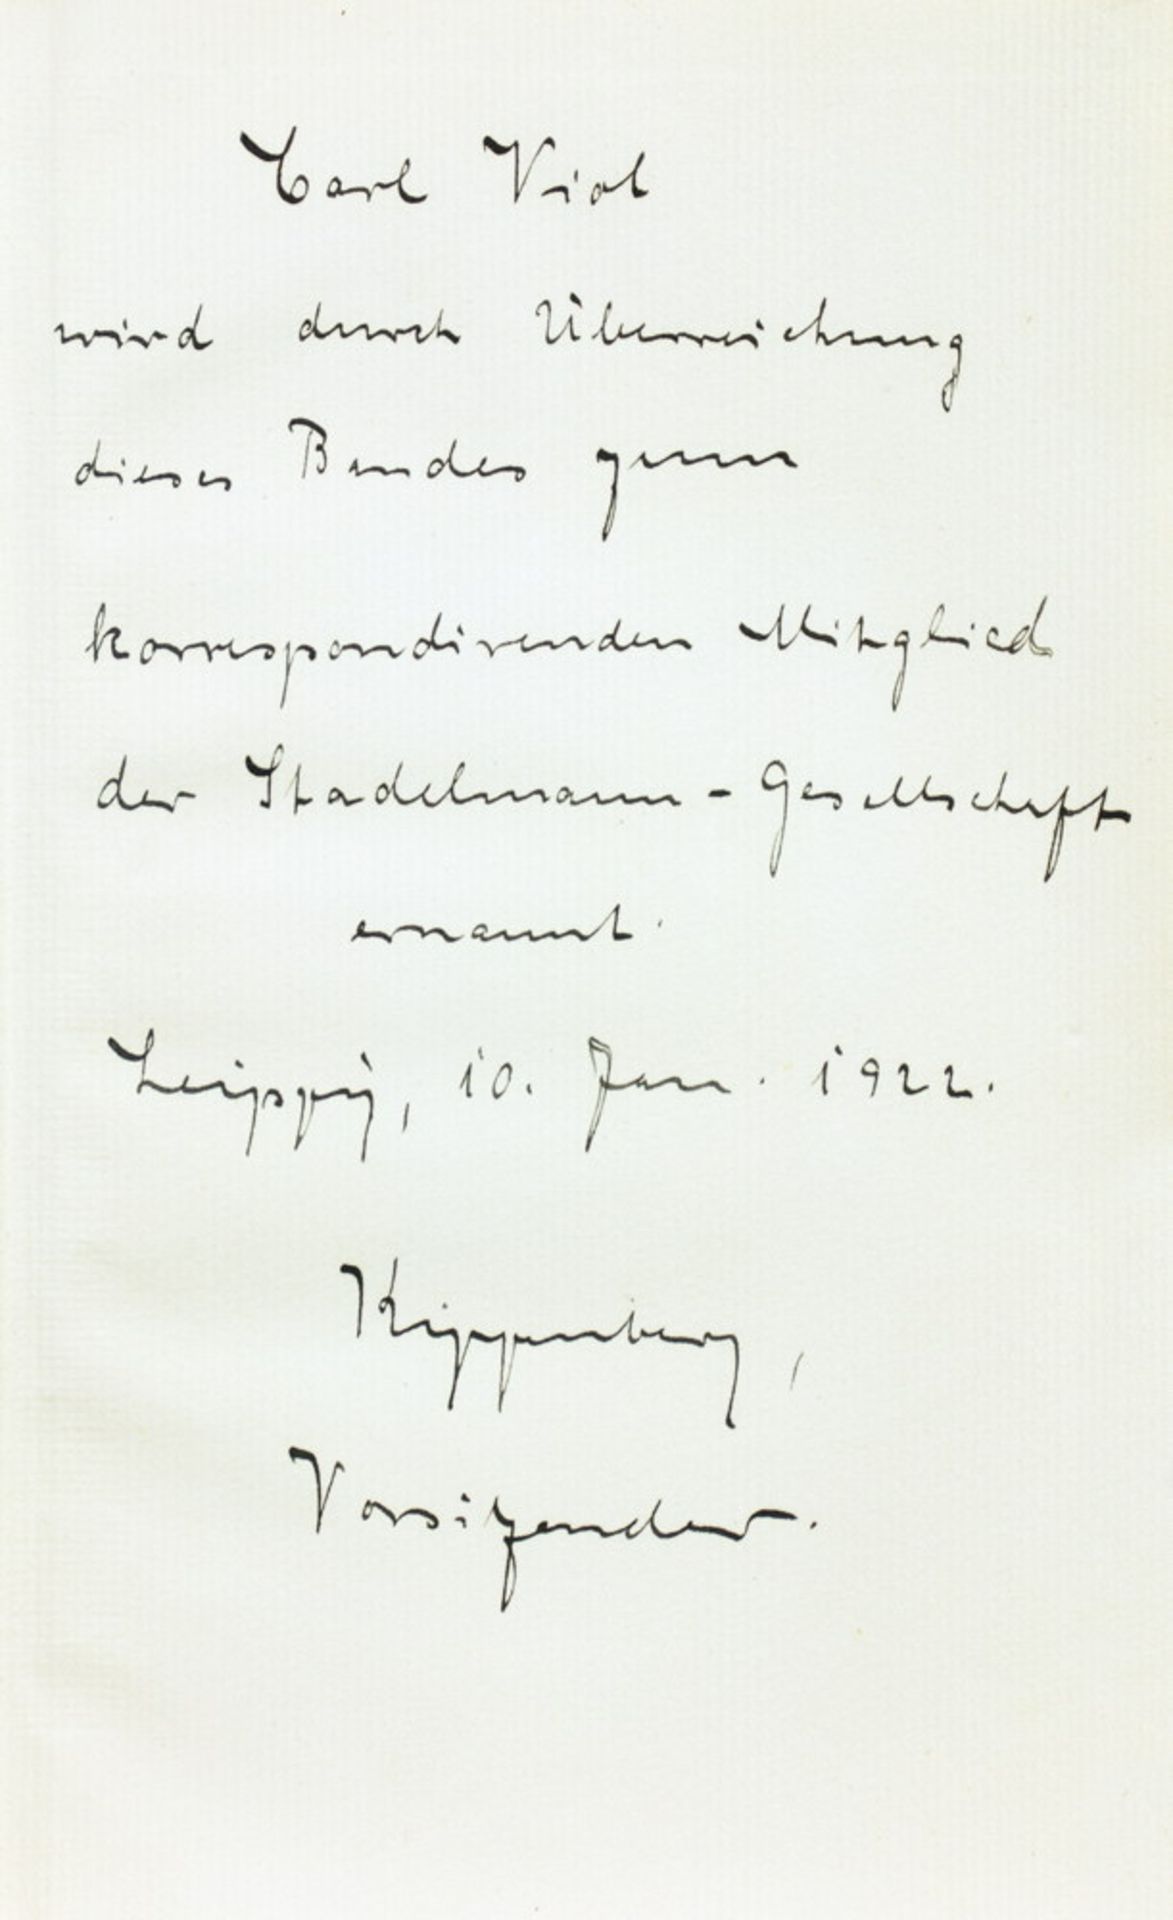 Carl Viol
wird durch Überreichung
dieses Bandes zum
korrespondirenden Mitglied
der Stadelmann-Gesellschaft
ernannt.
Leipzig, 10. Jan. 1922.
Kippenberg,
Vorsitzender.